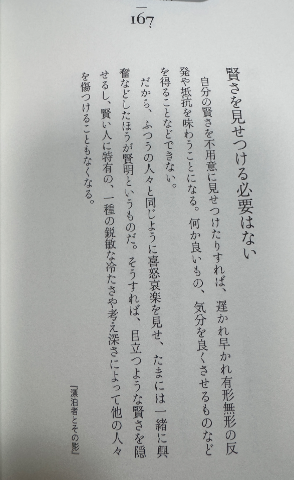 167
賢さを見せつける必要はない
自分の賢さを不用意に見せつけたりすれば、遅かれ早かれ有形無形の反
発や抵抗を味わうことになる。何か良いもの、気分を良くさせるものなど
を得ることなどできない。
だから、ふつうの人々と同じように喜怒哀楽を見せ、たまには一緒に興
奮などしたほうが賢明というものだ。そうすれば、目立つような賢さを隠
せるし、賢い人に特有の、一種の鋭敏な冷たさや考え深さによって他の人々
を傷つけることもなくなる。
『漂泊者とその影』